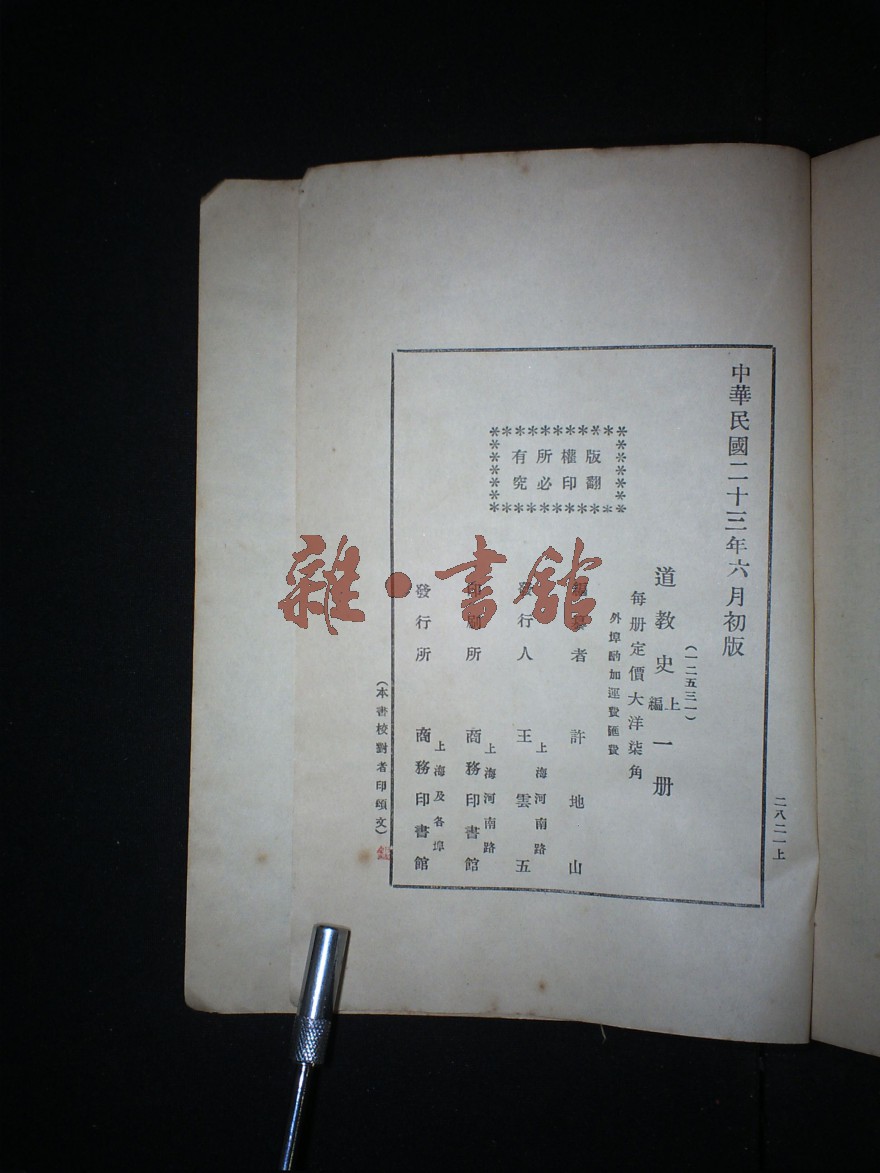 二八二一上
中華民國二十三年六月初版
(一二五三一)
道教史上編一册
每册定價大洋柒角
外埠酌加運費匯費
版權所有
翻印必究
編纂者 許地山
發行人 上海河南路 王雲五
印刷所 上海河南路 商務印書館
發行所 上海及各埠 商務印書館
(本書校對者印頌文)
雜·書館